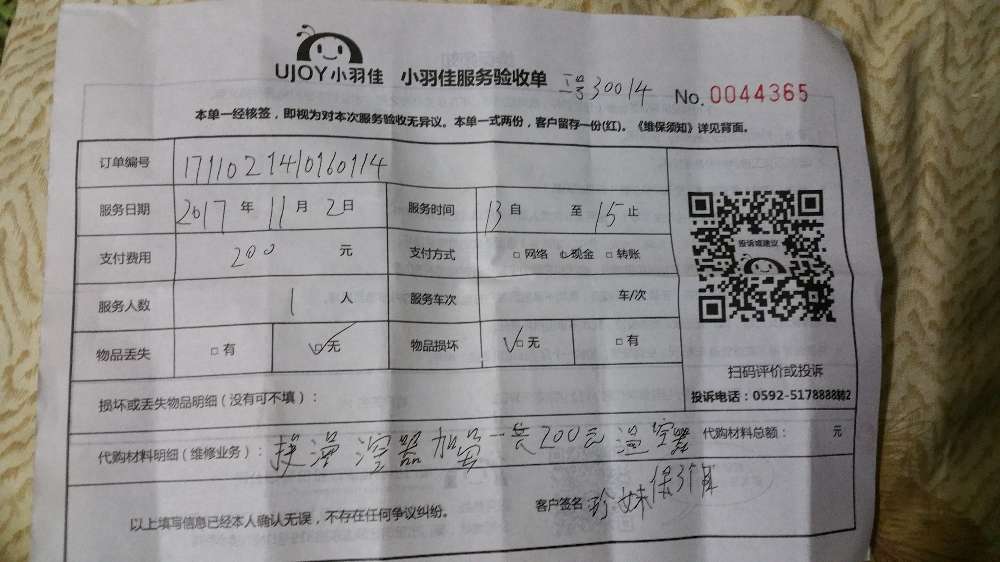 UJOY小羽佳 小羽佳服务验收单 工号30014 No. 0044365
本单一经核签，即视为对本次服务验收无异议。本单一式两份，客户留存一份(红)。《维保须知》详见背面。
订单编号 17110214010160114
服务日期 2017 年 11 月 2 日 服务时间 13 自 至 15 止
支付费用 200 元 支付方式 □ 网络 □ 现金 □ 转账
投诉或建议
服务人数 1 人 服务车次 车/次
物品丢失 □ 有 □ 无 物品损坏 □ 无 □ 有
扫码评价或投诉
损坏或丢失物品明细（没有可不填）： 投诉电话：0592-5178888转2
代购材料明细（维修业务）： 温控器 200元 温控器 代购材料总额： 元
以上填写信息已经本人确认无误，不存在任何争议纠纷。 客户签名 珍妹 保3个月